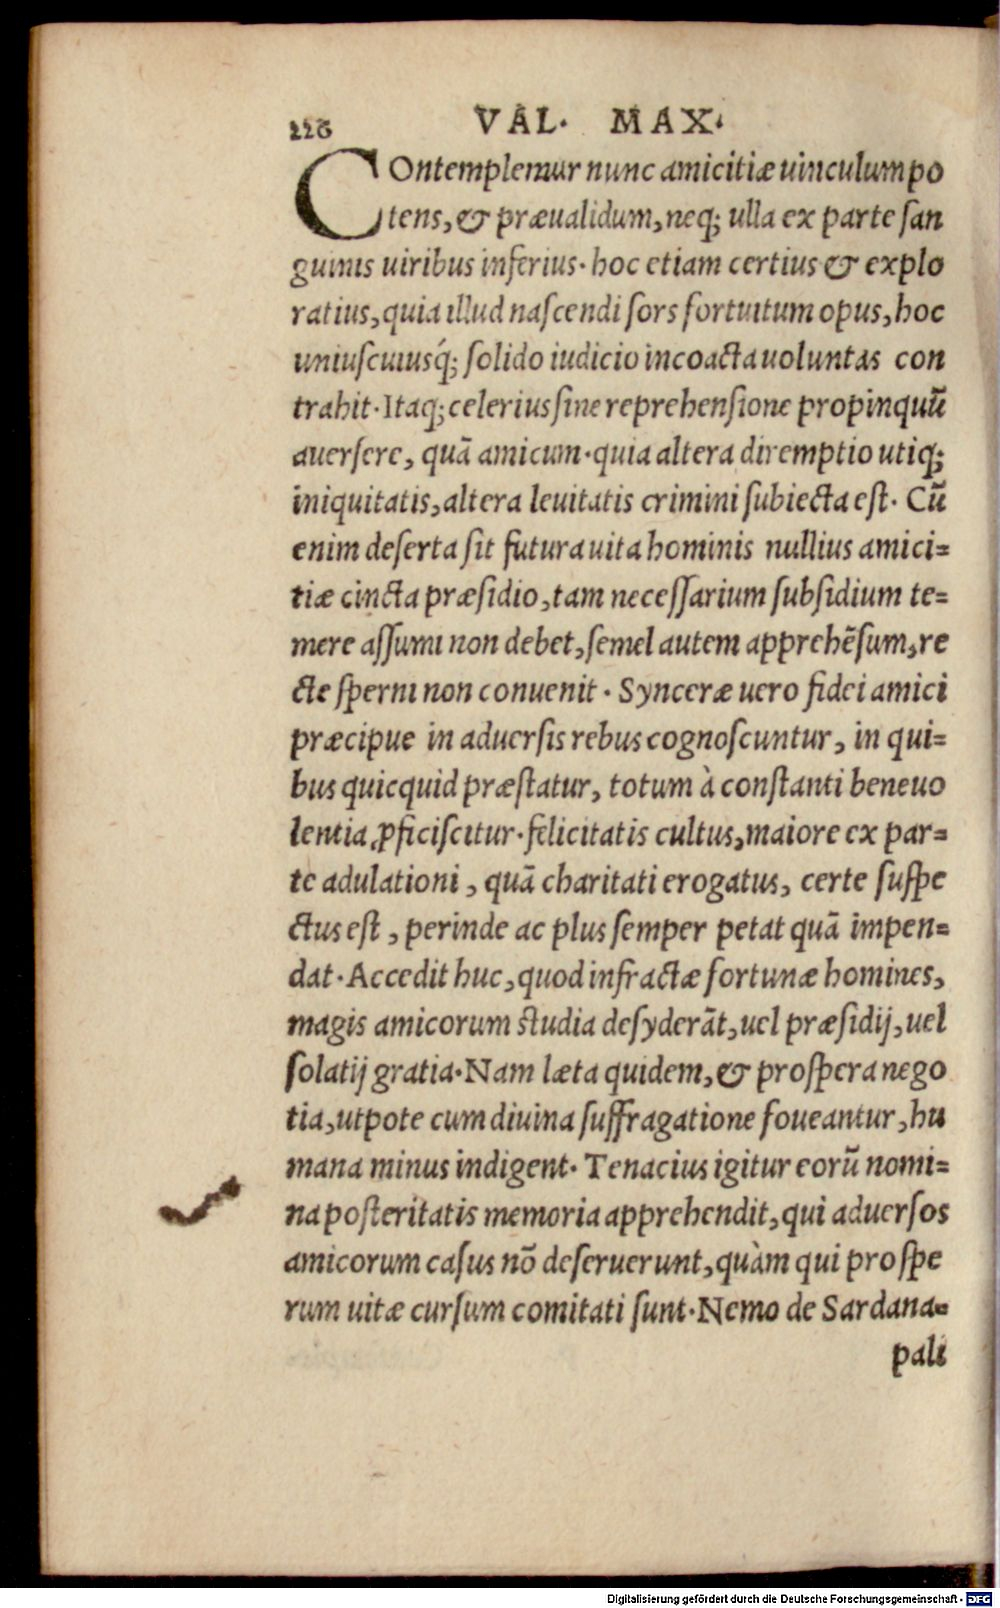 226 VAL. MAX.
COntemplemur nunc amicitiæ uinculum po
tens, & præualidum, neq; ulla ex parte ſan
guinis uiribus inferius. hoc etiam certius & explo
ratius, quia illud naſcendi ſors fortuitum opus, hoc
uniuſcuiusq́; ſolido iudicio incoacta uoluntas con
trahit. Itaq; celerius ſine reprehenſione propinquũ
auerſere, quã amicum. quia altera diremptio utiq;
iniquitatis, altera leuitatis crimini ſubiecta eſt. Cũ
enim deſerta ſit futura uita hominis nullius amici=
tiæ cincta præſidio, tam neceſſarium ſubſidium te=
mere aſſumi non debet, ſemel autem apprehẽſum, re
cte ſperni non conuenit. Synceræ uero fidei amici
præcipue in aduerſis rebus cognoſcuntur, in qui=
bus quicquid præſtatur, totum à conſtanti beneuo
lentia ꝓficiſcitur. felicitatis cultus, maiore ex par=
te adulationi, quã charitati erogatus, certe ſuſpe
ctus eſt, perinde ac plus ſemper petat quã impen=
dat. Accedit huc, quod infractæ fortunæ homines,
magis amicorum ſtudia deſyderãt, uel præſidij, uel
ſolatij gratia. Nam læta quidem, & proſpera nego
tia, utpote cum diuina ſuffragatione foueantur, hu
mana minus indigent. Tenacius igitur eorũ nomi=
na poſteritatis memoria apprehendit, qui aduerſos
amicorum caſus nõ deſeruerunt, quàm qui proſpe
rum uitæ curſum comitati ſunt. Nemo de Sardana=
pali
Digitalisierung gefördert durch die Deutsche Forschungsgemeinschaft - DFG